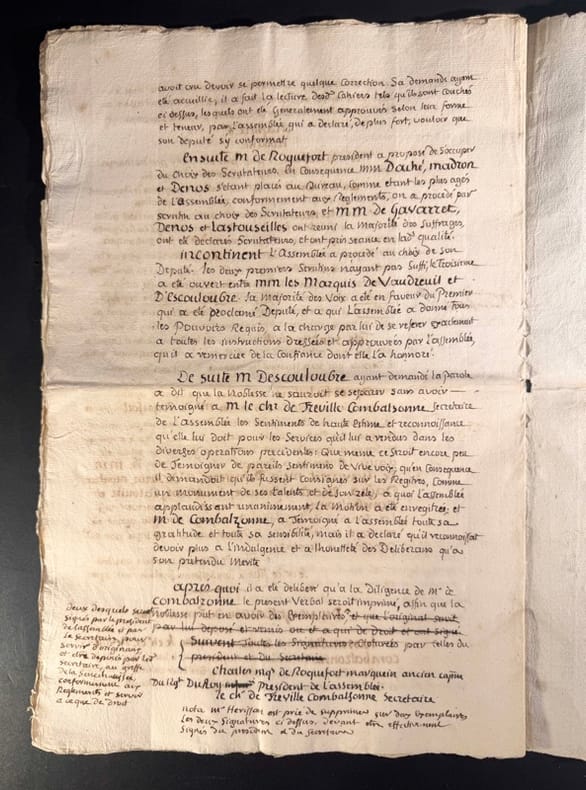 avoit cru devoir se permettre quelque correction. Sa demande ayant
ete acueillie, il a fait la lecture desd. Cahiers tels qu'ils sont couchés
ci dessus, lesquels ont ete Generalement approuvés selon leur forme
et teneur, par l'assemblée qui a declaré, de plus fort, vouloir que
son deputé s'y conformat
Ensuite M de Roquefort president a proposé de s'occuper
du Choix des Scrutateurs, en Consequence MM Daché, madron
et Denos s'étant placés au Bureau, Comme etant les plus agés
de l'assemblée, conformement aux Reglements, on a procedé par
scrutin au choix des Scrutateurs, et MM de Gavarret,
Denos et Lastouseilles ont reuni la Majorité des Suffrages,
ont ete declarés Scrutateurs, et ont pris seance en lad. qualité.
incontinent l'Assemblée a procedé au choix de son
Deputé. les deux premiers Scrutins n'ayant pas Suffi, le Troisieme
a ete ouvert entre MM les Marquis de Vaudreuil et
D'Escouloubre. la Majorité des Voix a eté en faveur du Premier
qui a ete proclamé Deputé, et a qui L'assemblée a donné Tous
les Pouvoirs Requis, a la charge par lui de se referer exactement
a toutes les instructions dressées et approuvées par l'assemblée,
qu'il a remerciée de la Confiance dont elle l'a honoré.
De suite M Descouloubre ayant demandé la Parole
a dit que la Noblesse ne sauroit se separer sans avoir
temoigné a M le chr. de Treville Combalsonne Secretaire
de L'assemblée les Sentiments de haute Estime et reconnoissance
qu'elle lui doit pour les Services qu'il lui a rendus dans les
diverses operations precedentes: Que meme ce seroit encore peu
de Temoigner de pareils sentiments de Vive voix; qu'en Consequence
il demandoit qu'ils fussent consignés sur les Registres, Comme
un monument de ses talents et de son zele; a quoi L'assemblée
applaudissant unanimement, la Motion a ete enregistrée; et
M. de Combalzonne, a Temoigné a L'assemblée toute sa
gratitude et toute sa sensibilité, mais il a declaré qu'il reconnoissoit
devoir plus a l'indulgence et a l'honetteté des Deliberans qu'a
son pretendu Merite
après quoi il a ete deliberé qu'a la Diligence de Mr. de
Combalzonne le present Verbal seroit imprimé, affin que la
Noblesse put en avoir des Exemplaires, et que l'original seroit
par lui deposé et remis ou et a qui de Droit et ont signé
Suivent Toutes les Signatures Cloturées par celles du
president et du Secretaire
deux desquels seront
signés par le president
de l'assemblée et par
le Secretaire, pour
servir d'originaux
et etre deposés par led.
Secretaire, au greffe
de la Senechaussée,
conformement aux
Reglements et servir
a ce que de droit
Charles mqs. de Roquefort marquein ancien capne
Du Regt. Du Roy President de l'assemblée.
le chr. de Treville Combalsonne Secretaire
nota Mr. Herisson est prié de supprimer sur deux Exemplaires
les deux Signatures ci dessus, devant etre effectivement
signés du president et du secretaire